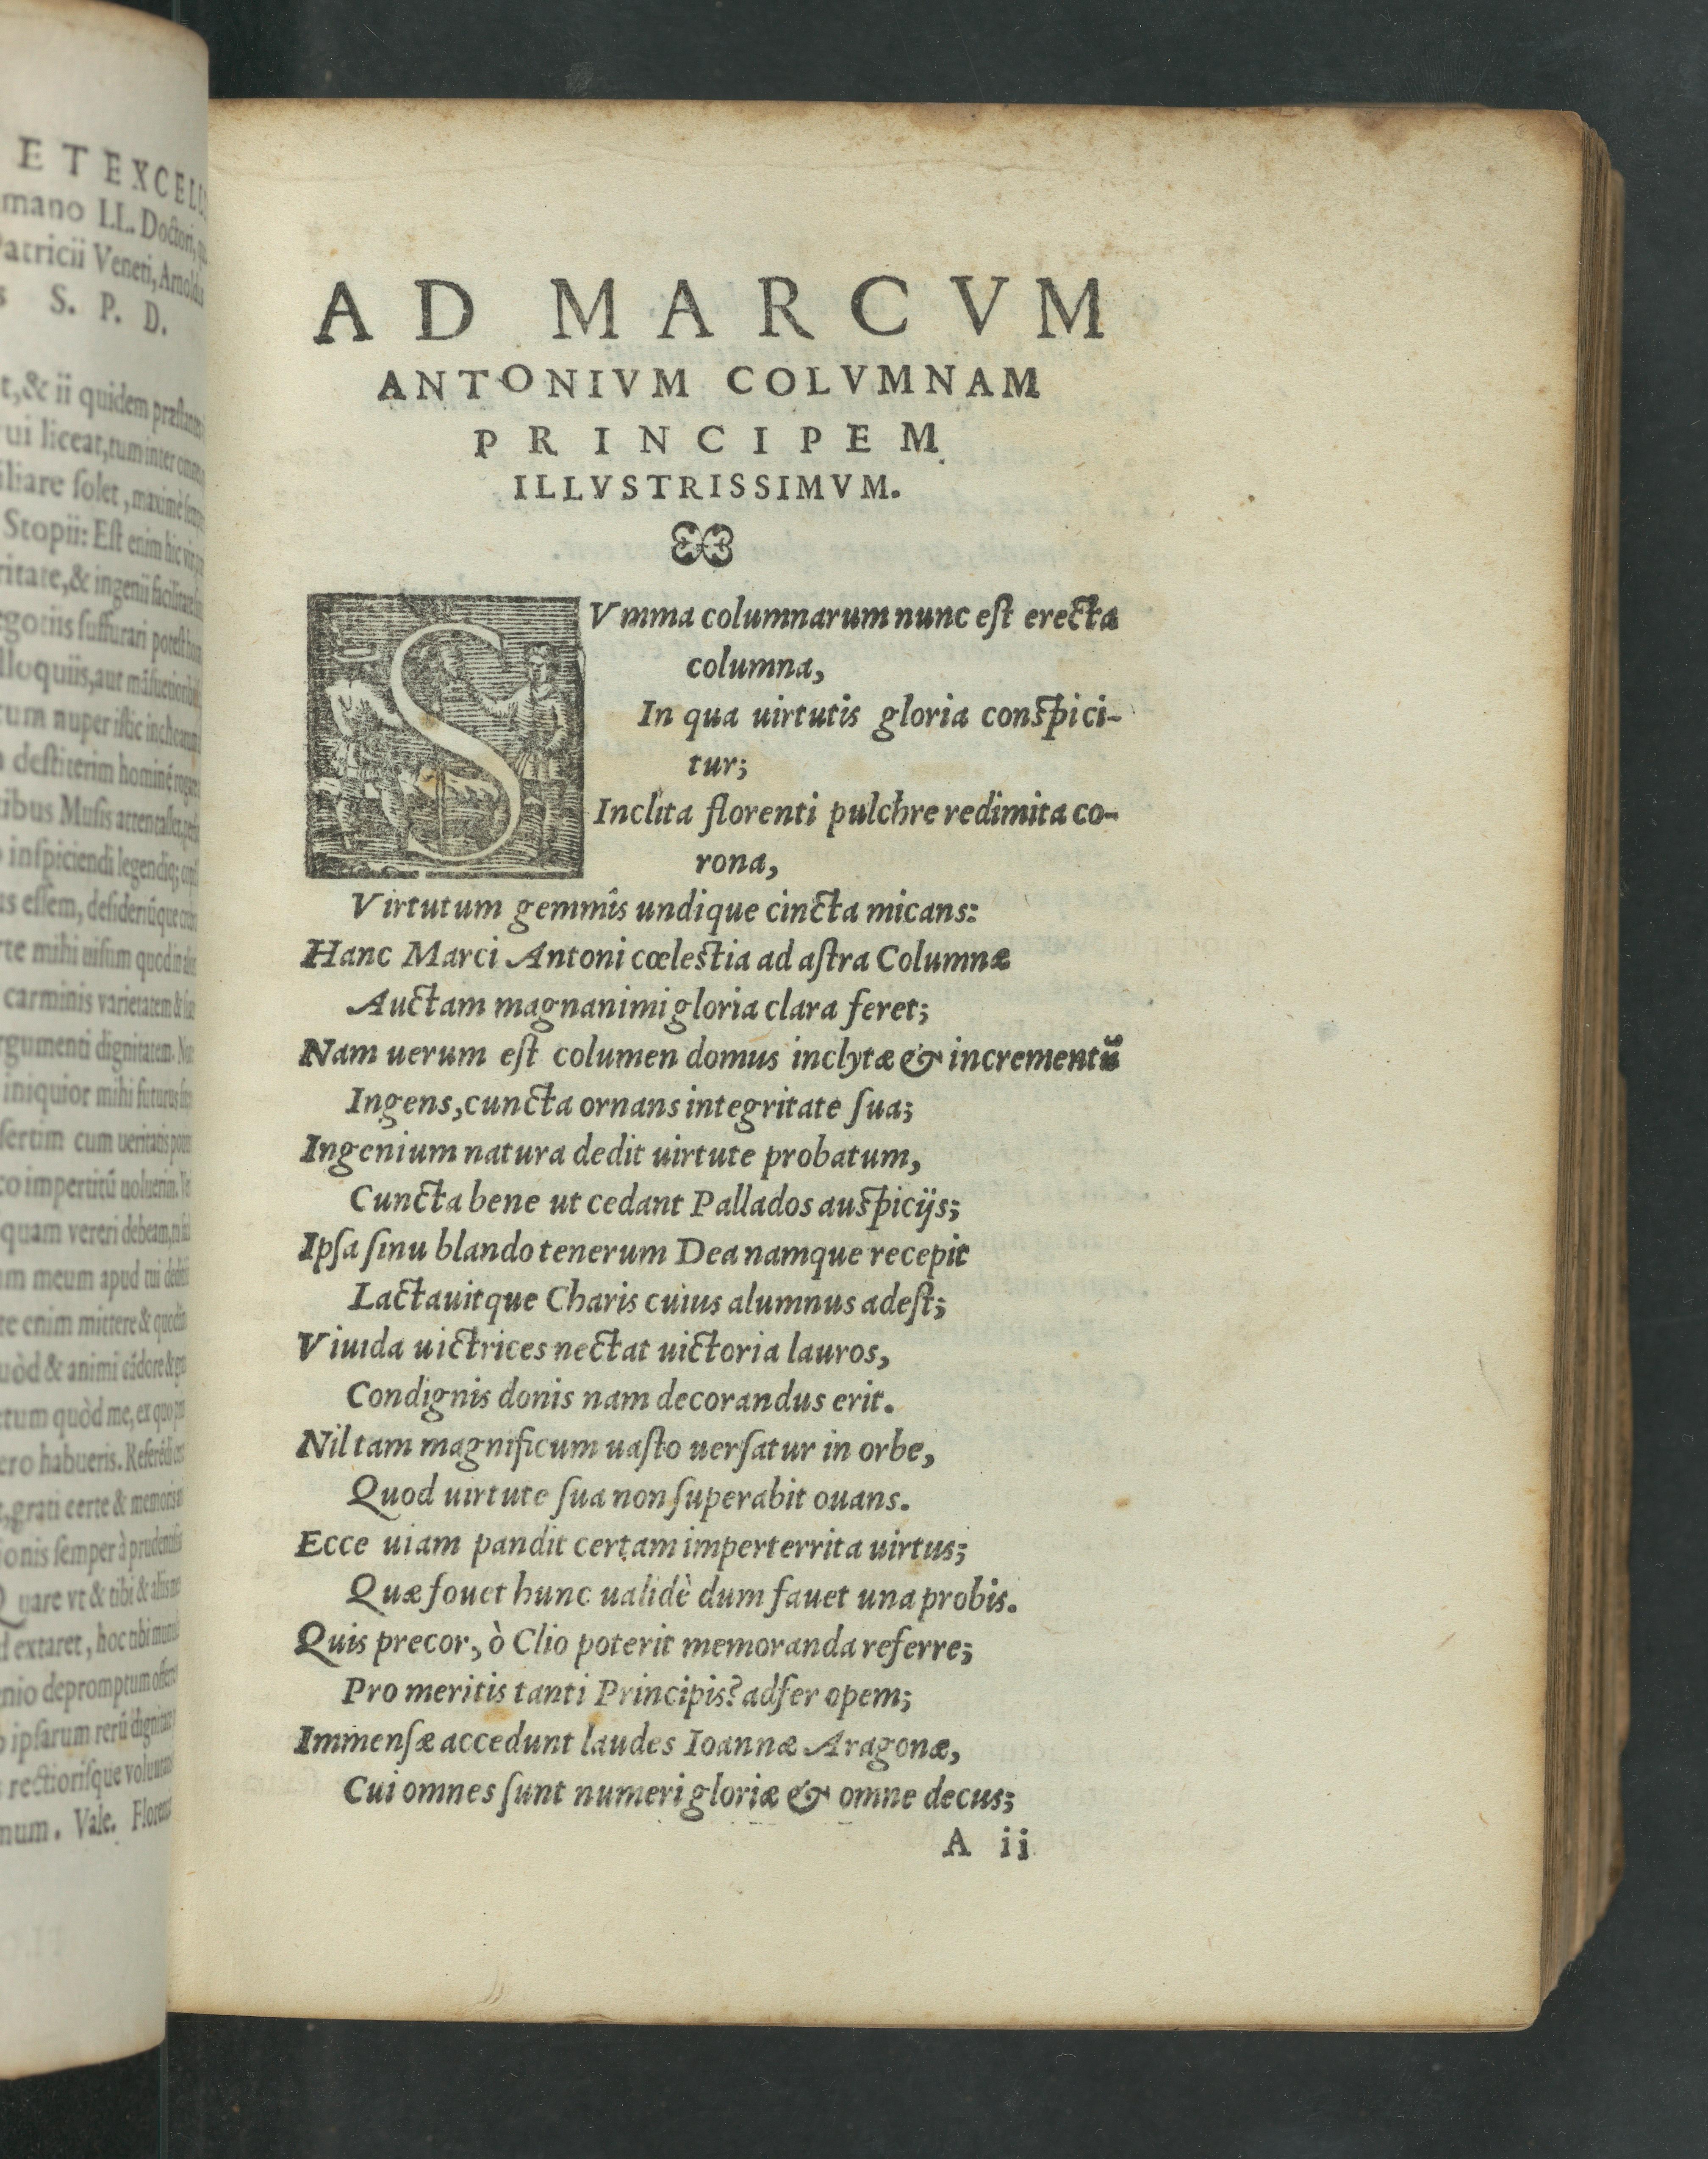 ET EXCELL
mano I.L. Doctori,
Patricii Veneti, Arnoldus
S. P. D.
t, & ii quidem præstantes
ui liceat, tum inter
iliare solet, maximè
Stopii: Est enim hic vir
ritate, & ingenii facilitate
egotiis suffurari potest
lloquiis, aut
tum nuper istic
destiterim hominé rogare
tibus Musis attentasset,
inspiciendi legendiq;
us essem, desideriúque
rte mihi uisum quod in
carminis varietatem &
rgumenti dignitatem.
iniquior mihi futurus
sertim cum ueritatis
co impertitū uoluerim.
quam vereri debeam,
um meum apud tui
te enim mittere &
uòd & animi cādore &
ctum quòd me, ex quo
ero habueris.
, grati certe & memoris
ionis semper à prudentissi
Quare vt & tibi & aliis
d extaret, hoc tibi
enio depromptum
ipsarum rerū dignitas
rectiorisque
num. Vale. Floren
AD MARCVM
ANTONIVM COLVMNAM
PRINCIPEM
ILLVSTRISSIMVM.
SVmma columnarum nunc est erecta
columna,
In qua uirtutis gloria conspici-
tur;
Inclita florenti pulchre redimita co-
rona,
Virtutum gemmis undique cincta micans:
Hanc Marci Antoni cœlestia ad astra Columnæ
Auctam magnanimi gloria clara feret;
Nam uerum est columen domus inclytæ & incrementū
Ingens, cuncta ornans integritate sua;
Ingenium natura dedit uirtute probatum,
Cuncta bene ut cedant Pallados auspicijs;
Ipsa sinu blando tenerum Dea namque recepit
Lactauitque Charis cuius alumnus adest;
Viuida uictrices nectat uictoria lauros,
Condignis donis nam decorandus erit.
Nil tam magnificum uasto uersatur in orbe,
Quod uirtute sua non superabit ouans.
Ecce uiam pandit certam imperterrita uirtus;
Quæ fouet hunc ualidè dum fauet una probis.
Quis precor, ò Clio poterit memoranda referre;
Pro meritis tanti Principis? adfer opem;
Immensæ accedunt laudes Ioannæ Aragonæ,
Cui omnes sunt numeri gloriæ & omne decus;
A ii